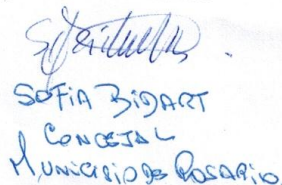 SOFIA BIDART
CONCEJAL
MUNICIPIO DE ROSARIO.